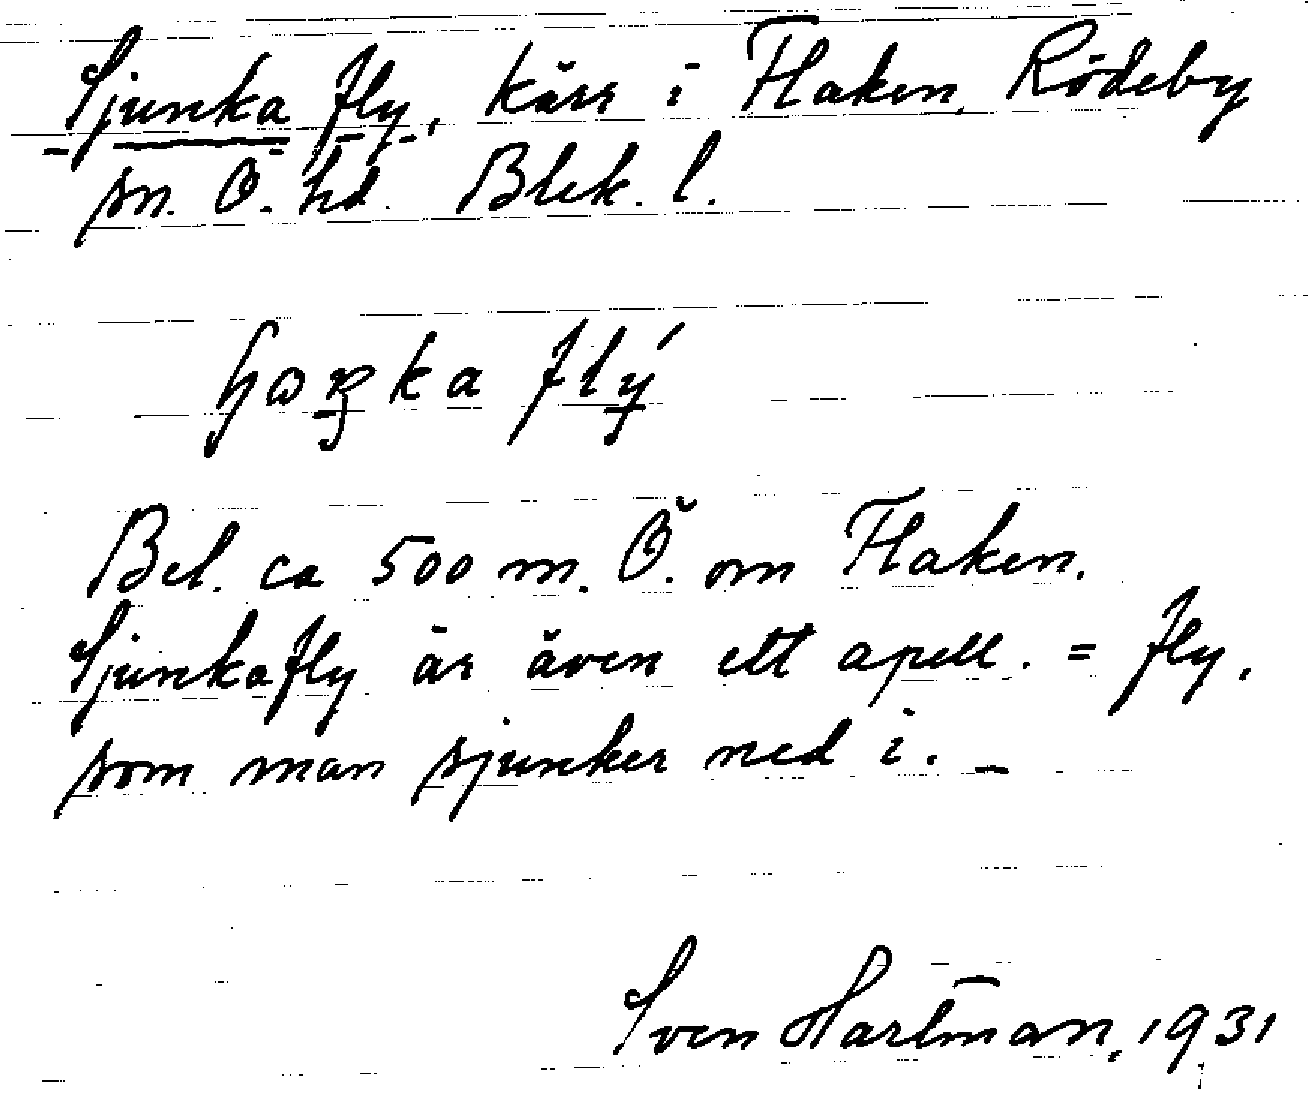 Sjunka fly, kärr i Flaken, Rödeby
sn. Ö. hd. Blek. l.
ka flý
Bel. ca 500 m. Ö. om Flaken.
Sjunkafly är även ett apell. = fly,
som man sjunker ned i. _
Sven Hartman, 1931